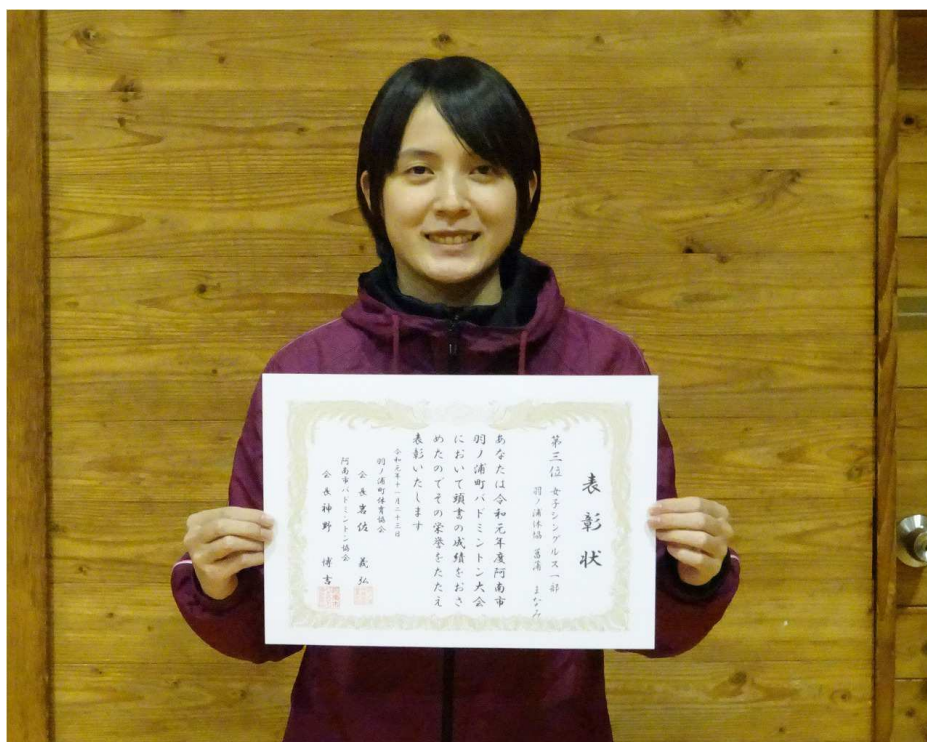 表彰状
第三位 女子シングルス一部
羽ノ浦体協 菖蒲 まなみ
あなたは令和元年度阿南市
羽ノ浦町バドミントン大会
において頭書の成績をおさ
めたのでその栄誉をたたえ
表彰いたします
令和元年十一月二十三日
羽ノ浦町体育協会
会長 岩佐 義弘
阿南市バドミントン協会
会長 神野 博吉